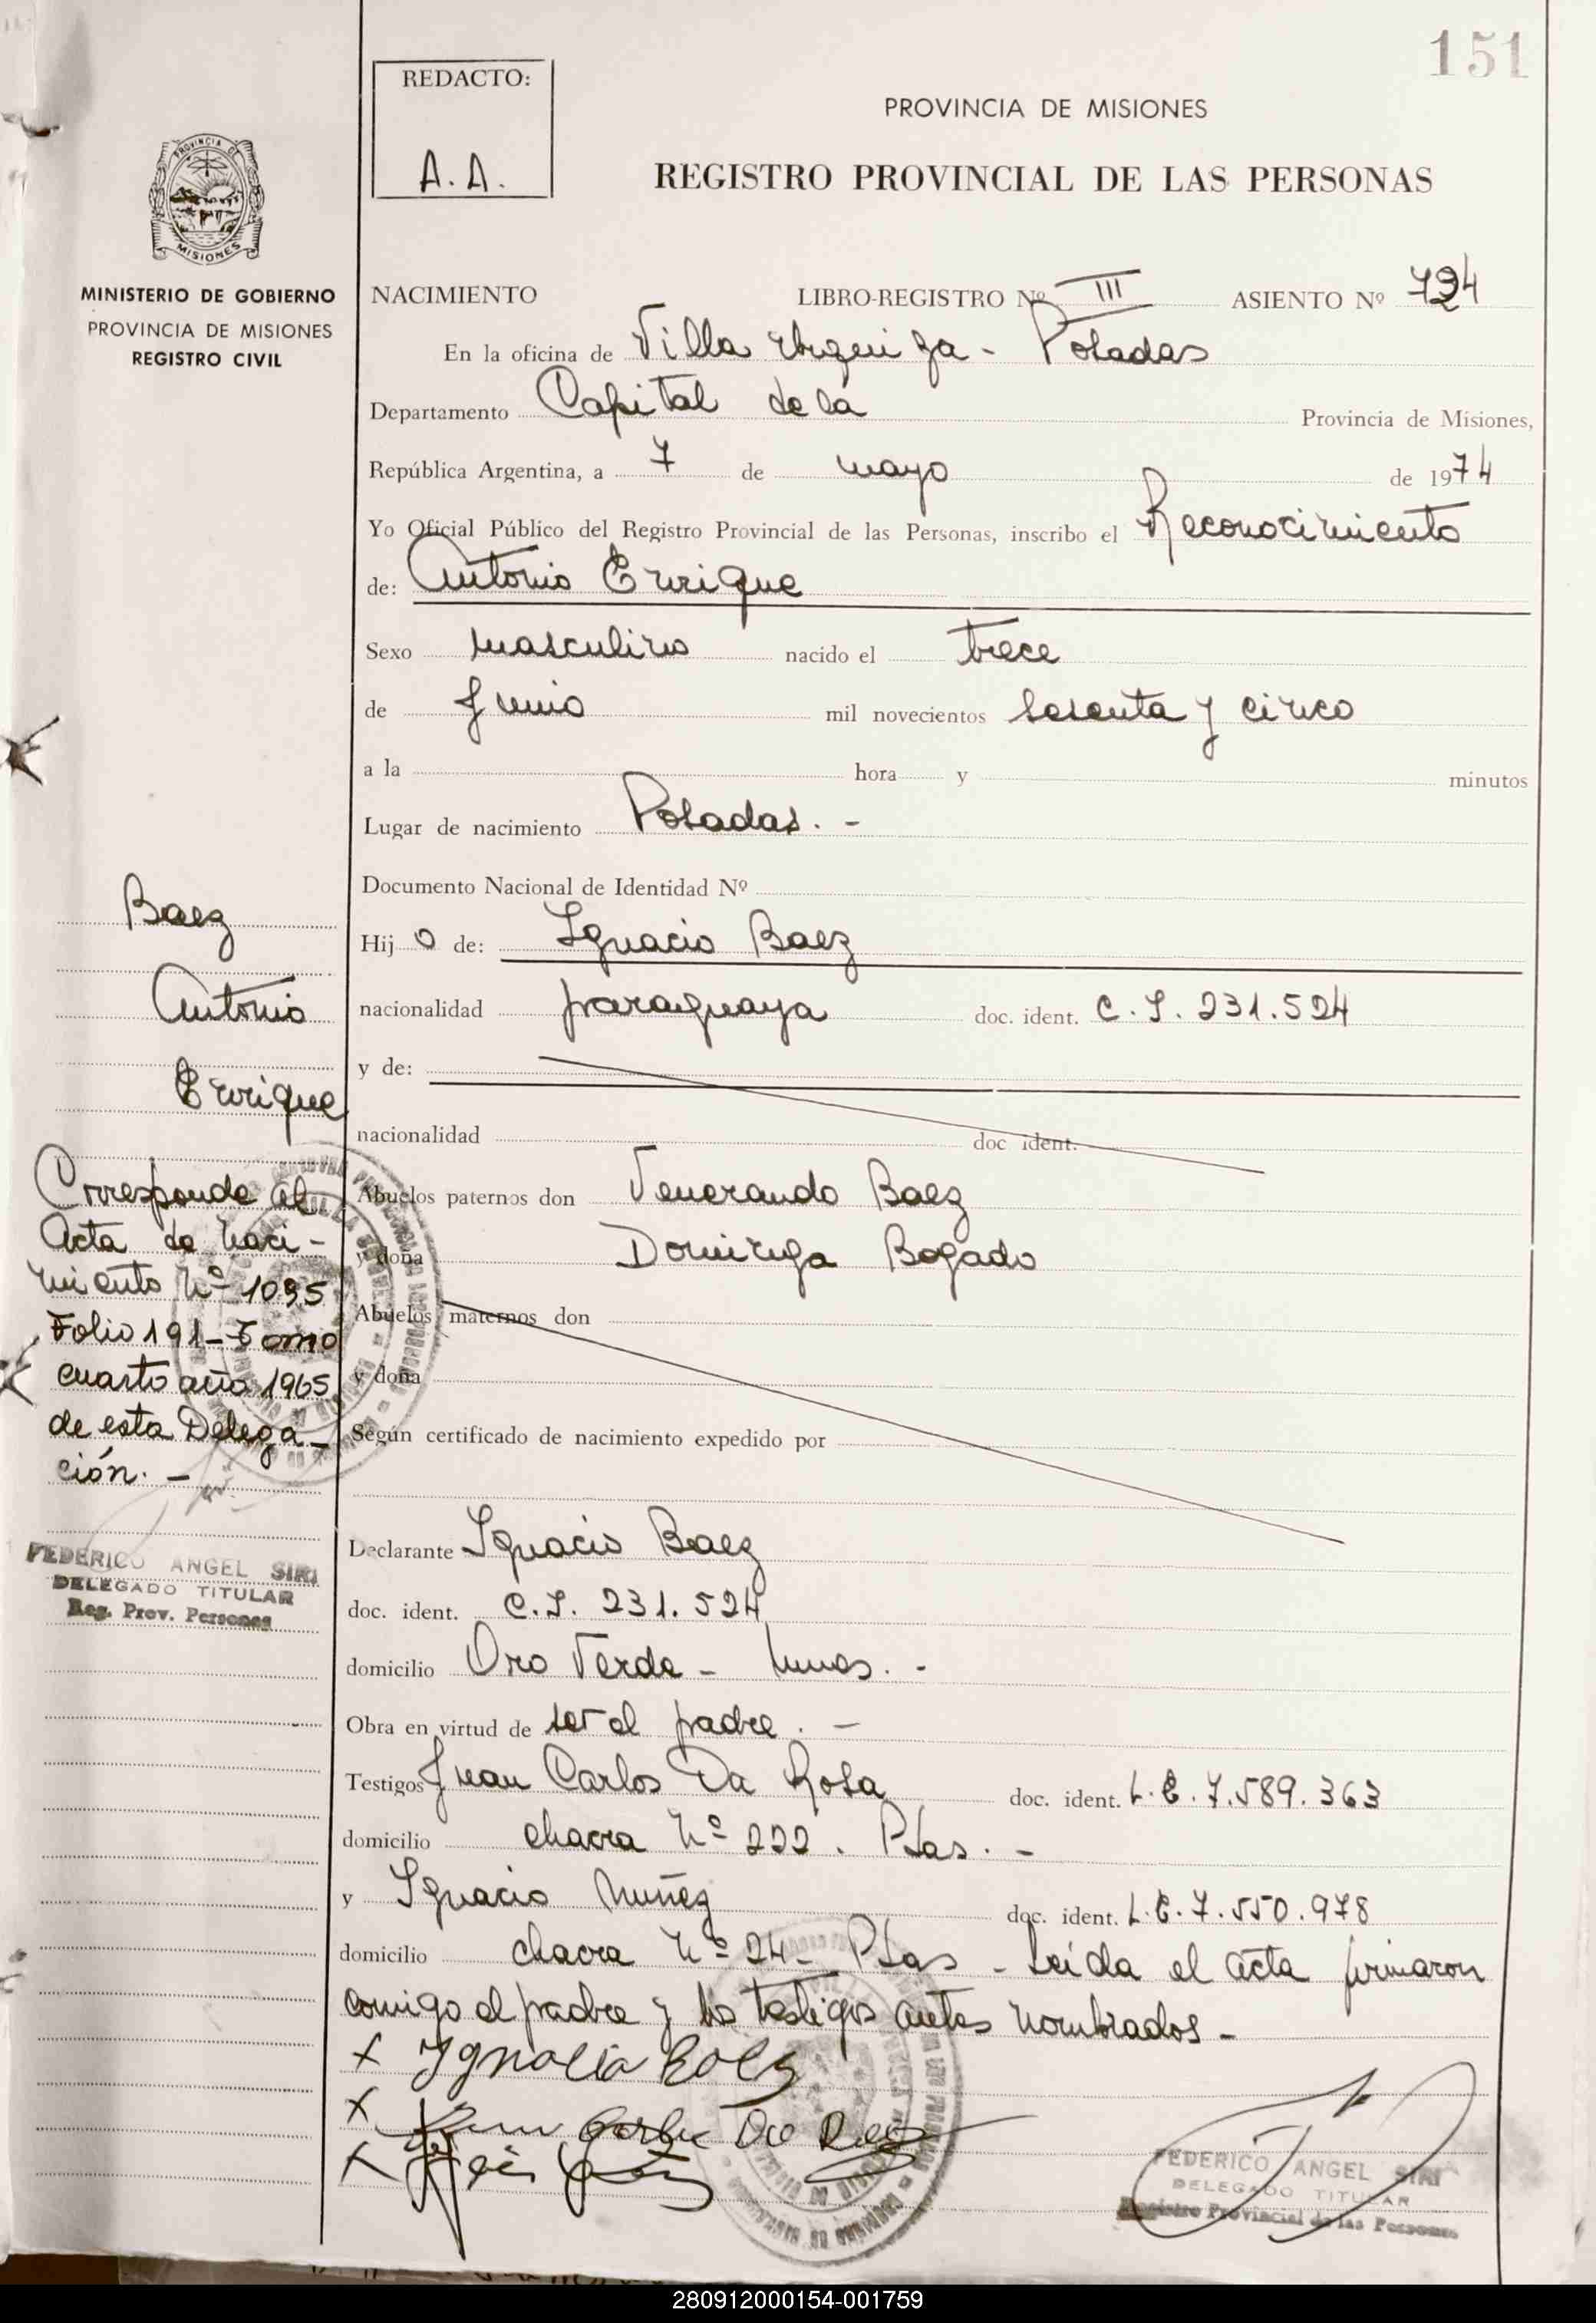 151
REDACTO:
A. A.
PROVINCIA DE MISIONES
REGISTRO PROVINCIAL DE LAS PERSONAS
PROVINCIA DE
MISIONES
MINISTERIO DE GOBIERNO
PROVINCIA DE MISIONES
REGISTRO CIVIL
NACIMIENTO LIBRO-REGISTRO Nº III ASIENTO Nº
En la oficina de Villa Urquiza - Posadas
Departamento Capital de la Provincia de Misiones,
República Argentina, a 7 de mayo de 1974
Yo Oficial Público del Registro Provincial de las Personas, inscribo el Reconocimiento
de: Antonio Enrique
Sexo masculino nacido el trece
de Junio mil novecientos sesenta y cinco
a la hora y minutos
Lugar de nacimiento Posadas. -
Documento Nacional de Identidad Nº
Hij o de: Ignacio Baez
nacionalidad paraguaya doc. ident. C. I. 231.524
y de:
nacionalidad doc ident.
Abuelos paternos don Venerando Baez
y doña Dominga Bogado
Abuelos maternos don
y doña
Según certificado de nacimiento expedido por
Declarante Ignacio Baez
doc. ident. C. I. 231. 524
domicilio Oro Verde -
Obra en virtud de ser el padre. -
Testigos Juan Carlos Da Rosa doc. ident. L. E. 7.589.363
domicilio chacra Nº 222. Pdas. -
y Ignacio Nuñez doc. ident. L. E. 7.550.978
domicilio chacra Nº 24 - Pdas - Leída el acta firmaron
conmigo el padre y los testigos antes nombrados -
x Ignacio Baez
x
x
FEDERICO ANGEL SIRI
DELEGADO TITULAR
Registro Provincial de las Personas
Baez
Antonio
Enrique
Corresponde al
Acta de Naci-
miento Nº 1095
Folio 191 - Tomo
cuarto año 1965
de esta Delega-
ción. -
FEDERICO ANGEL SIRI
DELEGADO TITULAR
Reg. Prov. Personas
280912000154-001759